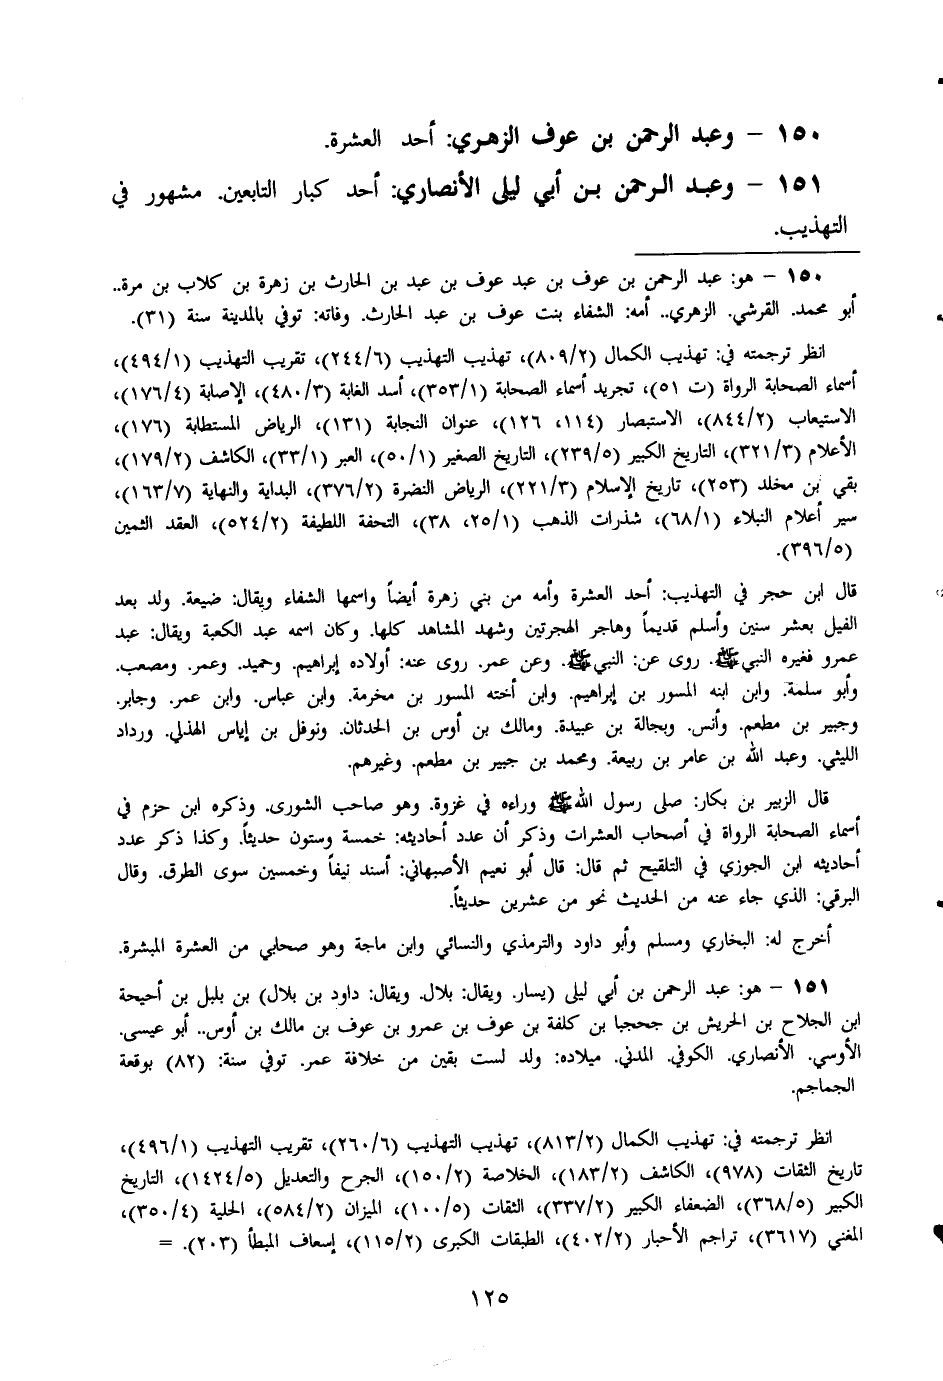 ١٥٠ – وعبد الرحمن بن عوف الزهري: أحد العشرة.
١٥١ – وعبد الرحمن بن أبي ليلى الأنصاري: أحد كبار التابعين. مشهور في
التهذيب.
١٥٠ – هو: عبد الرحمن بن عوف بن عبد عوف بن عبد بن الحارث بن زهرة بن كلاب بن مرة..
أبو محمد. القرشي. الزهري.. أمه: الشفاء بنت عوف بن عبد الحارث. وفاته: توفي بالمدينة سنة (٣١).
انظر ترجمته في: تهذيب الكمال (٨٠٩/٢)، تهذيب التهذيب (٢٤٤/٦)، تقريب التهذيب (٤٩٤/١)،
أسماء الصحابة الرواة (ت ٥١)، تجريد أسماء الصحابة (٣٥٣/١)، أسد الغابة (٤٨٠/٣)، الإصابة (١٧٦/٤)،
الاستيعاب (٨٤٤/٢)، الاستبصار (١١٤، ١٢٦)، عنوان النجابة (١٣١)، الرياض المستطابة (١٧٦)،
الأعلام (٣٢١/٣)، التاريخ الكبير (٢٣٩/٥)، التاريخ الصغير (٥٠/١)، العبر (٣٣/١)، الكاشف (١٧٩/٢)،
بقي بن مخلد (٢٥٣)، تاريخ الإسلام (٢٢١/٣)، الرياض النضرة (٣٧٦/٢)، البداية والنهاية (١٦٣/٧)،
سير أعلام النبلاء (٦٨/١)، شذرات الذهب (٢٥/١، ٣٨)، التحفة اللطيفة (٥٢٤/٢)، العقد الثمين
(٣٩٦/٥).
قال ابن حجر في التهذيب: أحد العشرة وأمه من بني زهرة أيضاً واسمها الشفاء ويقال: ضيعة. ولد بعد
الفيل بعشر سنين وأسلم قديماً وهاجر الهجرتين وشهد المشاهد كلها. وكان اسمه عبد الكعبة ويقال: عبد
عمرو فغيره النبي ﷺ. روى عن: النبي ﷺ. وعن عمر. روى عنه: أولاده إبراهيم. وحميد. وعمر. ومصعب.
وأبو سلمة. وابن ابنه المسور بن إبراهيم. وابن أخته المسور بن مخرمة. وابن عباس. وابن عمر. وجابر.
وجبير بن مطعم. وأنس. وبجالة بن عبيدة. ومالك بن أوس بن الحدثان. ونوفل بن إياس الهذلي. ورداد
الليثي. وعبد الله بن عامر بن ربيعة. ومحمد بن جبير بن مطعم. وغيرهم.
قال الزبير بن بكار: صلى رسول الله ﷺ وراءه في غزوة. وهو صاحب الشورى. وذكره ابن حزم في
أسماء الصحابة الرواة في أصحاب العشرات وذكر أن عدد أحاديثه: خمسة وستون حديثاً. وكذا ذكر عدد
أحاديثه ابن الجوزي في التلقيح ثم قال: قال أبو نعيم الأصبهاني: أسند نيفاً وخمسين سوى الطرق. وقال
البرقي: الذي جاء عنه من الحديث نحو من عشرين حديثاً.
أخرج له: البخاري ومسلم وأبو داود والترمذي والنسائي وابن ماجة وهو صحابي من العشرة المبشرة.
١٥١ – هو: عبد الرحمن بن أبي ليلى (يسار. ويقال: بلال. ويقال: داود بن بلال) بن بلبل بن أحيحة
ابن الجلاح بن الحريش بن جحجبا بن كلفة بن عوف بن عمرو بن عوف بن مالك بن أوس.. أبو عيسى.
الأوسي. الأنصاري. الكوفي. المدني. ميلاده: ولد لست بقين من خلافة عمر. توفي سنة: (٨٢) بوقعة
الجماجم.
انظر ترجمته في: تهذيب الكمال (٨١٣/٢)، تهذيب التهذيب (٢٦٠/٦)، تقريب التهذيب (٤٩٦/١)،
تاريخ الثقات (٩٧٨)، الكاشف (١٨٣/٢)، الخلاصة (١٥٠/٢)، الجرح والتعديل (١٤٢٤/٥)، التاريخ
الكبير (٣٦٨/٥)، الضعفاء الكبير (٣٣٧/٢)، الثقات (١٠٠/٥)، الميزان (٥٨٤/٢)، الحلية (٣٥٠/٤)،
المغني (٣٦١٧)، تراجم الأحبار (٤٠٢/٢)، الطبقات الكبرى (١١٥/٢)، إسعاف المبطأ (٢٠٣). =
١٢٥